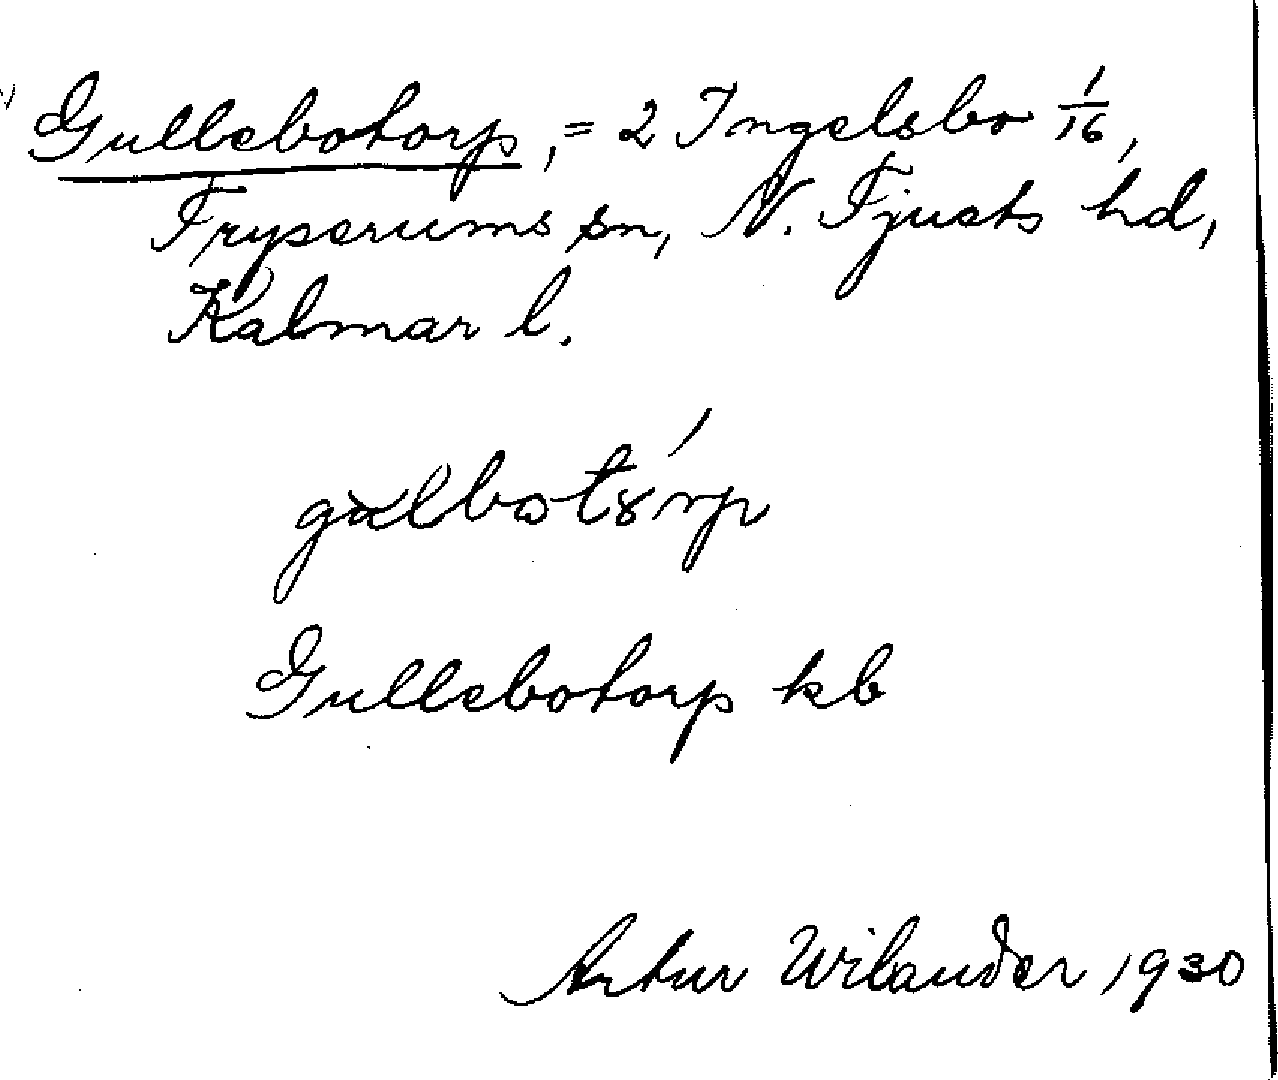 Gullebotorp, = 2 Ingelsbo 1/16,
Tryserums sn, N. Tjusts hd,
Kalmar l.
Gullebotorp kb
Artur Wilander 1930